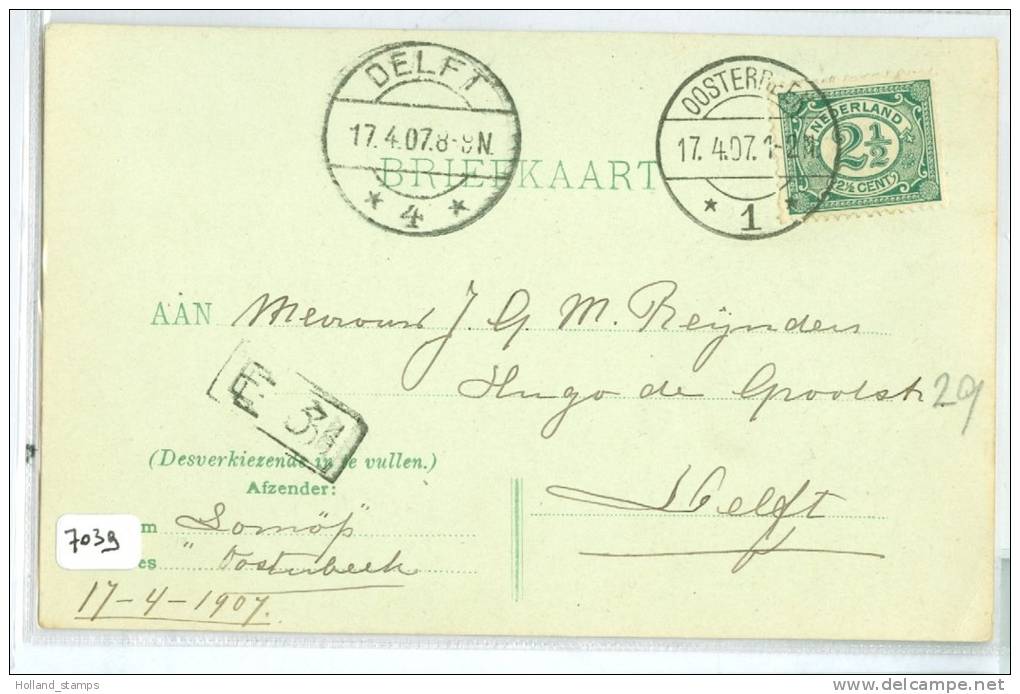 DELFT
17.4.07.8-9N.
4
OOSTERBEEK
17.4.07.1-2N
1
NEDERLAND
2½
2½ CENT
BRIEFKAART
AAN Mevrouw J. G. M. Reijnders
Hugo de Grootstr 29
E 34
(Desverkiezende in te vullen.)
Afzender:
Delft
7039
m "Lomöss"
es " Oosterbeek
17-4-1907.
Holland_stamps
www.delcampe.net